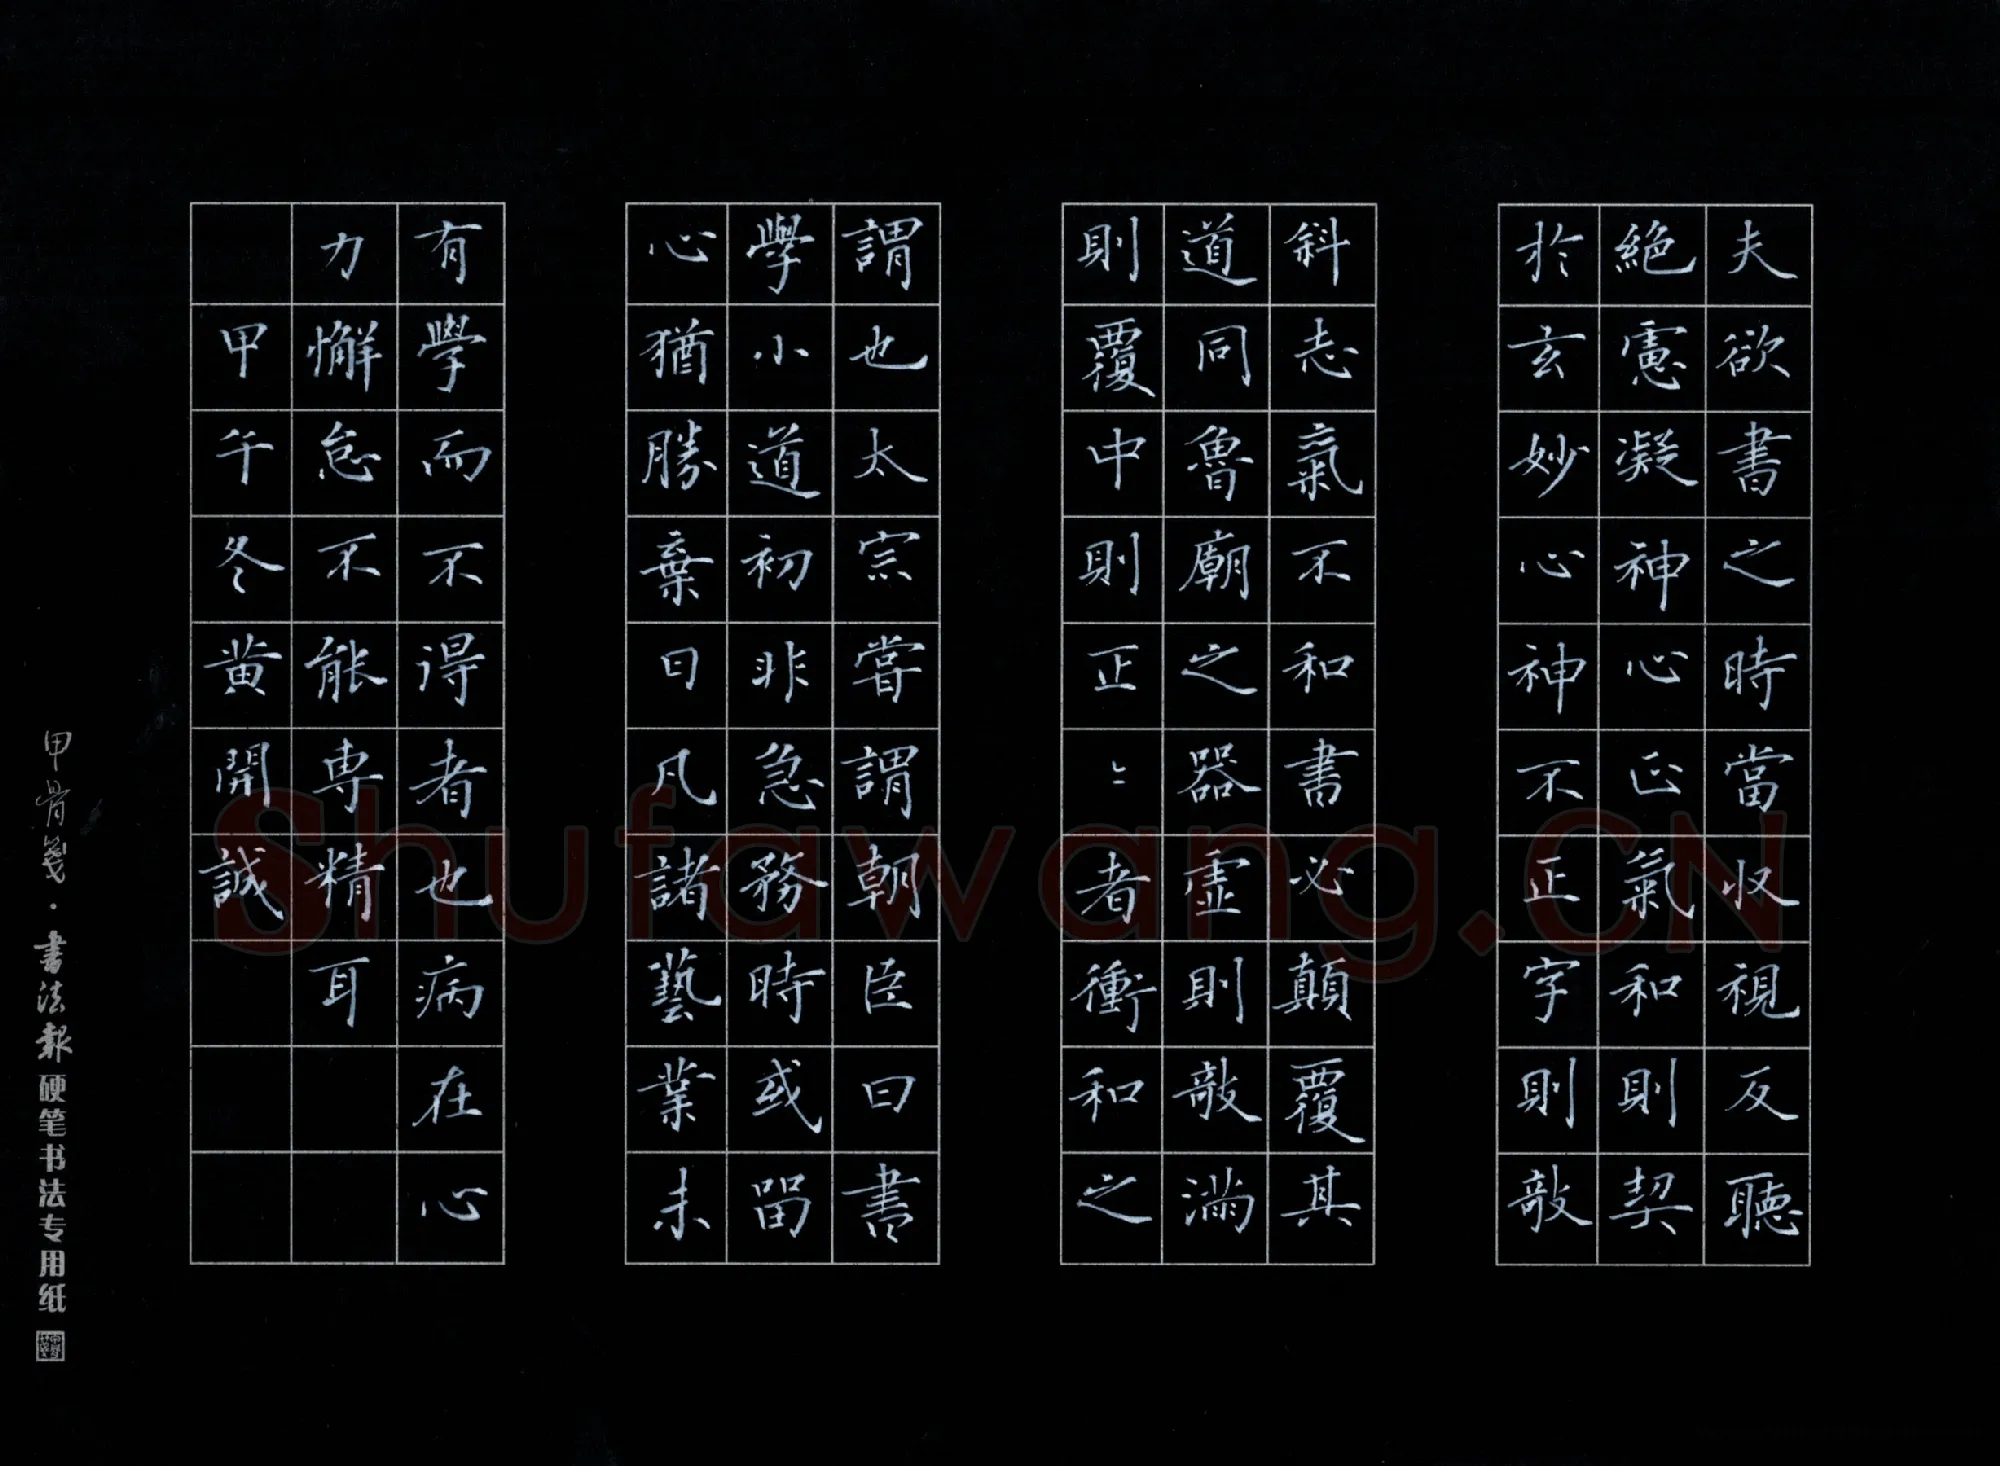 夫欲書之時當収視反聽
絕慮凝神心正氣和則契
於玄妙心神不正字則敧
斜志氣不和書必顛覆其
道同魯廟之器虛則敧滿
則覆中則正正〻者衝和之
謂也太宗嘗謂朝臣曰書
學小道初非急務時或留
心猶勝棄日凡諸藝業未
有學而不得者也病在心
力懈怠不能専精耳
甲午冬黄開誠
甲骨箋·書法報硬笔书法专用纸
Shufawang.CN